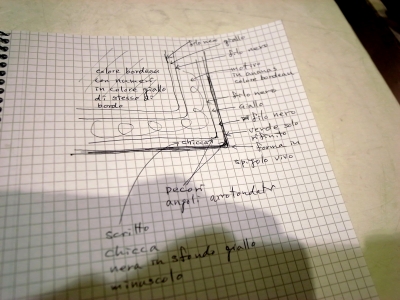 giallo
filo nero
colore bordeaux
con numeri
in colore giallo
di stesso di
bordo
motivo
in ananas
colore bordeau
filo nero
Giallo
filo nero
verde solo
forma M
spigolo vivo
chicca
angeli arrotondati
scritto
chicca
nera in sfondo giallo
minuscolo